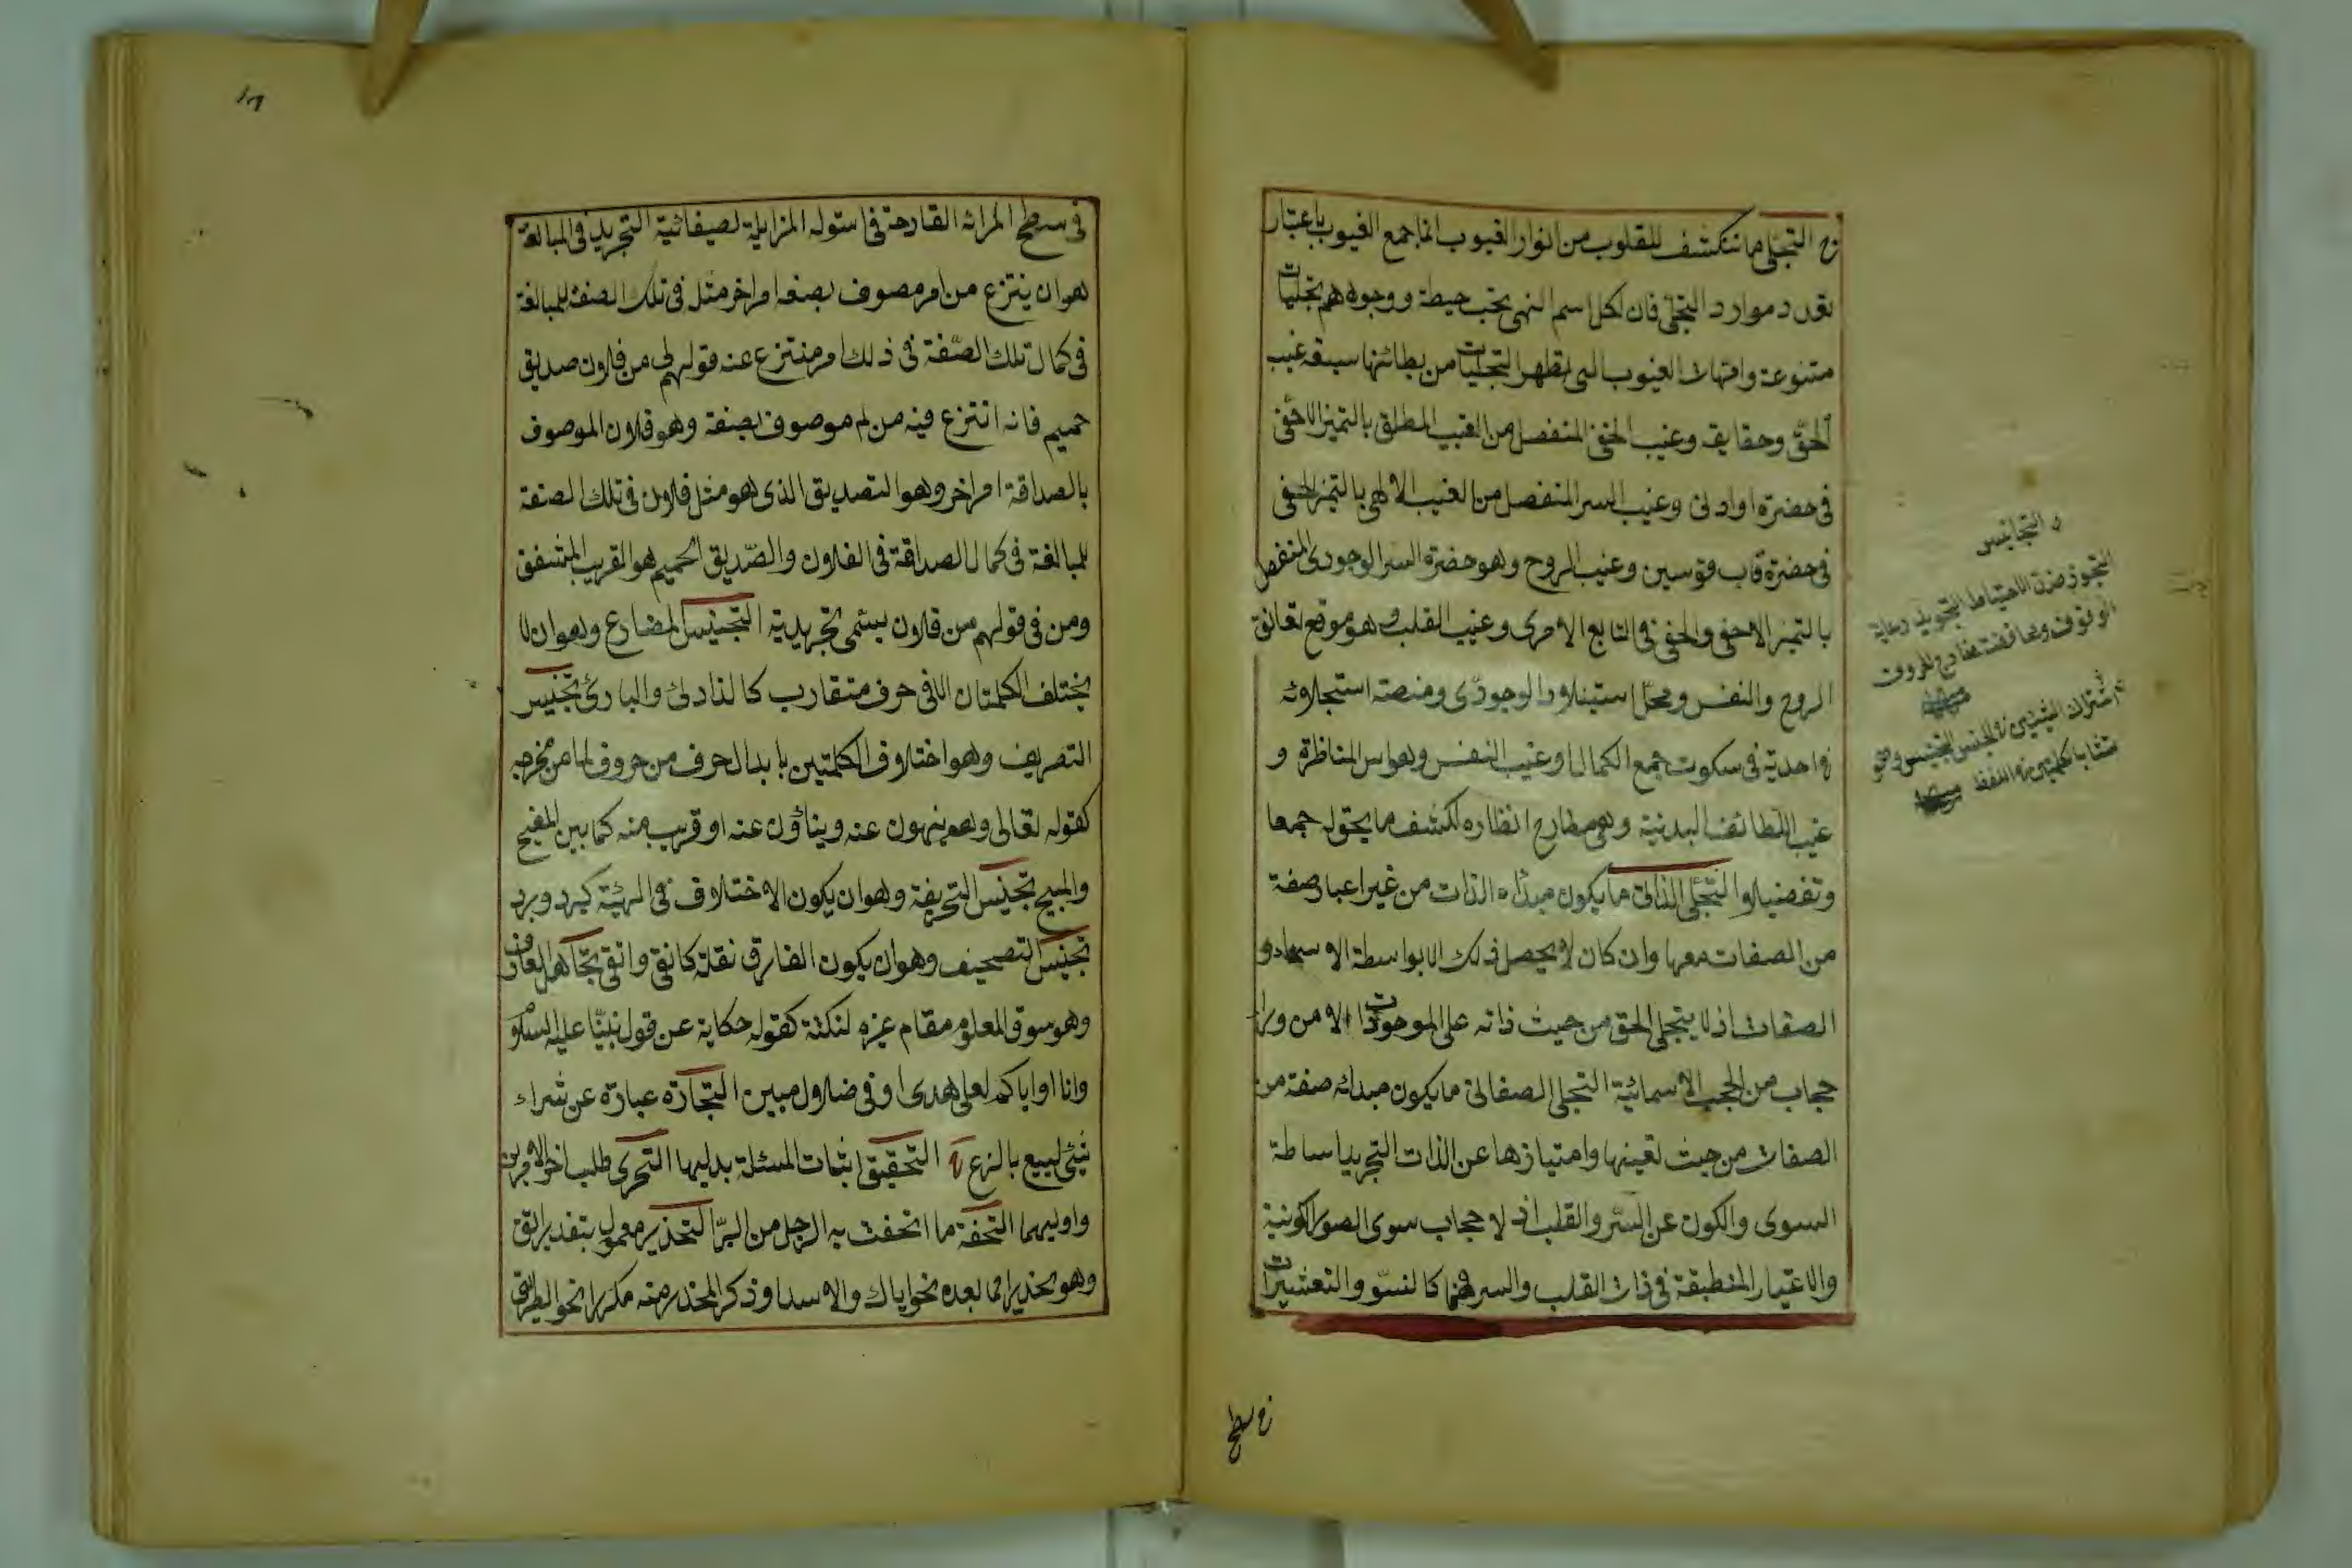 ج التجلى ما تنكشف للقلوب من انوار الغيوب انما جمع الغيوب باعتبار
تعدد موارد التجلى فان لكل اسم الٓهى بحسب حيطة ووجوهه تجليات
متنوعة وامهات الغيوب التى تظهر التجليات من بطائنها سبعة غيب
الحق وحقايقه وغيب الخفى المنفصل من الغيب المطلق بالتميز الاخفى
فى حضرة او ادنى وغيب السر المنفصل من الغيب الالهى بالتميز الخفى
فى حضرة قاب قوسين وغيب الروح وهو حضرة السر الوجودى المنفصل
بالتميز الاخفى والخفى فى التابع الامرى وغيب القلب وهو موقع تعانق
الروح والنفس ومحل استيلاد الوجودى ومنصة استجلائه
احدية فى سكوت جمع الكمال وغيب النفس وهو اس المناظرة و
غيب اللطائف البدنية وهى مطارح انظاره لكشف ما يحق له جمعا
وتفصيلا و التجلى الذاتى ما يكون مبدأه الذات من غير اعتبار صفة
من الصفات معها وان كان لا يحصل ذلك الا بواسطة الاسماء و
الصفات اذ لا يتجلى الحق من حيث ذاته على الموجودات الا من وراء
حجاب من الحجب الاسمائية التجلى الصفاتى ما يكون مبدأئه صفة من
الصفات من حيث تعينها وامتيازها عن الذات التجريد اماطة
السوى والكون عن السر والقلب اذ لا حجاب سوى الصور الكونية
والاغيار المنطبقة فى ذات القلب والسر فيهما كالنتو والتشعيرات
التجانس
اشتراك الشيئين فى الجنس التجنيس وهو
تشابه الكلمتين فى اللفظ
فى سطح
فى سطح المراٰة القادحة فى استوله المزايلة لصفائية التجريد فى المبالغة
هو ان ينتزع من امر موصوف بصفة امر اخر مثله فى تلك الصفة للمبالغة
فى كمال تلك الصّفة فى ذلك امر منتزع عنه قولهم لى من فلان صديق
حميم فانه انتزع فيه من لم موصوف بصفة وهو فلان الموصوف
بالصداقة امر اخر وهو التصديق الذى هو مثل فلان فى تلك الصفة
للمبالغة فى كمال الصداقة فى الفلان والصّديق الحميم هو القريب المشفق
ومن فى قولهم من فلان يسمى تجريدية التجنيس المضارع وهو ان لا
يختلف الكلمتان الا فى حرف متقارب كالذارئ والبارئ تجنيس
التصريف وهو اختلاف الكلمتين بابدال حرف من حروف اما من مخرجه
كقوله تعالى وهم ينهون عنه وينأون عنه او قريب منه كما بين المفيح
والمبيح تجنيس التحريفة وهو ان يكون الاختلاف فى الهيئة كبرد وبرد
تجنيس التصحيف وهو ان يكون الفارق نقطة كانقى واتقى تجاهل العارف
وهو سوق المعلوم مقام غيره لنكتة كقوله حكاية عن قول نبيّنا عليه السلام
وانا او اياكم لعلى هدى او فى ضلال مبين التجارة عبارة عن شراء
شئ ليبيع بالربح التحقيق اثبات المسئلة بدليها التحرى طلب احرى الامرين
واوليهما التحفة ما اتحفت به الرجل من البرّ التحذير معمول بتقدير اتق
وهو تحذيرا مما بعده نحو اياك والاسد او ذكر المحذر منه مكررا نحو الطريق